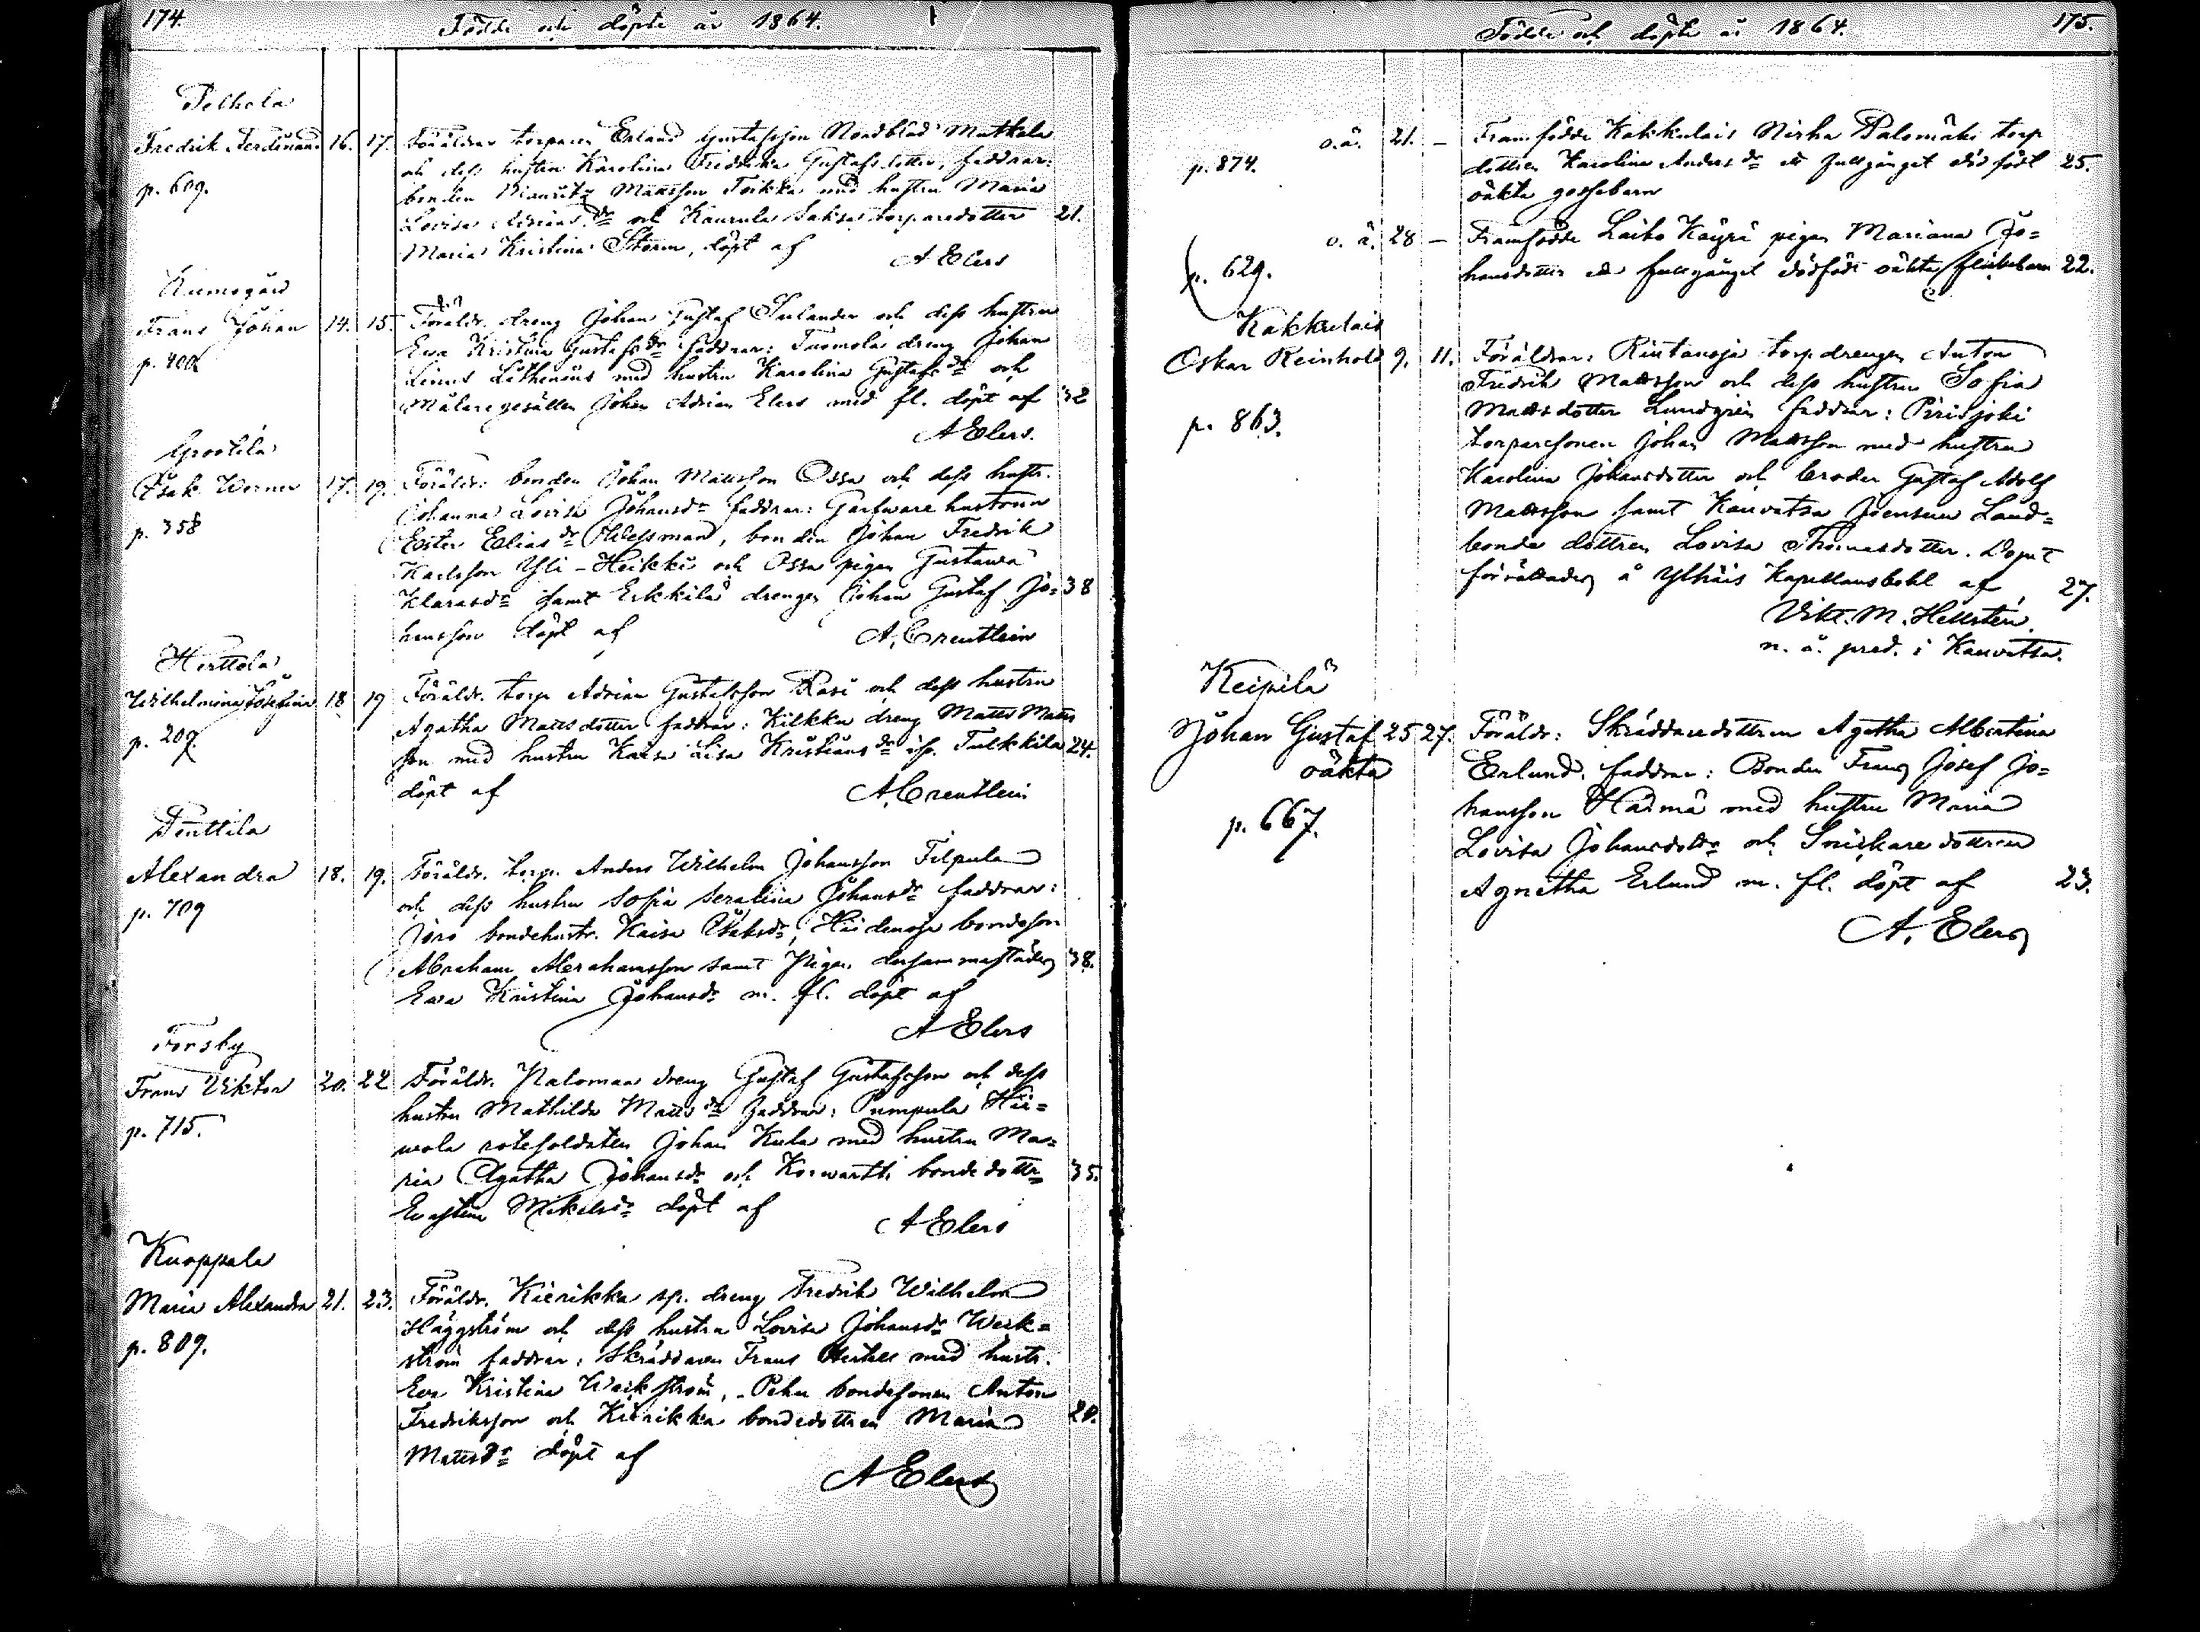 174.
Födde och döpte år 1864.
Pelhola
Fredrik Ferdinand 16. 17. Föräldrar torparen Erland Gustafsson Nordblad Mattela
och dess hustru Karolina Fredrika Gustafsdotter, faddrar:
p. 609. bonden Mauritz Mattsson Toikka med hustru Maria
Lovisa Adriansdr och Kaurula Saksa torparedotter 21.
Maria Kristina Storm, döpt af
A Elers
Kumogård
Frans Johan 14. 15. Föräldr. dreng Johan Gustaf Sulander och dess hustru
Ewa Kristina Gustafsdr faddrar: Tuomola dreng Johan
p. 400 Linus Lethenius med hustru Karolina Gustafsdr och
Målaregesällen Johan Adrian Elers med fl. döpt af 32
A Elers.
Grootila
Isak Werner 17. 19. Föräldr: bonden Johan Mattsson Ossa och dess hustr.
Johanna Lovisa Johansdr faddrar: Garfware hustrun
p. 358 Ester Eliasdr Wessman, bonden Johan Fredrik
Karlsson Yli-Heikki och Ossa pigan Gustawa
Klarasdr samt Erkkilä drengen Johan Gustaf Jo= 38
hansson döpt af A. Creutlein
Herttola
Wilhelmina Josefina 18 19 Föräldr. torp. Adrian Gustafsson Rasi och dess hustru
Agatha Mattsdotter faddrar: Kilkku dreng Matts Matts
p. 209. son med hustru Kaisa Lisa Kristiansdr isp. Tulkkila 24.
döpt af A. Creutlein
Penttila
Alexandra 18. 19. Föräldr. torp. Anders Wilhelm Johansson Filpula
och dess hustru Sofia Serafina Johansdr faddrar:
p. 709 Juro bondehustr. Kaisa Isaksdr, Haidenoja bondeson
Abraham Abrahamsson samt Pigan dersammastädes 38.
Ewa Kristina Johansdr m. fl. döpt af
A Elers
Forsby
Frans Viktor 20. 22 Föräldr. Naloman dreng Gustaf Gustafsson och dess
hustru Mathilda Mattsdr faddrar: Pumpula Hii=
p. 715. wola rotesoldaten Johan Kula med hustru Ma=
ria Agatha Johansdr och Korwartti bondedottr 35.
Ewastina Mikelsdr döpt af
A Elers
Kuoppala
Maria Alexandra 21. 23. Föräldr. Kierikka sp. dreng Fredrik Wilhelm
Häggström och dess hustru Lovisa Johansdr Weck=
p. 809. ström faddrar: Skräddaren Frans med hustr.
Ewa Kristina Weckström, Pehu bondesonen Anton
Fredriksson och Kierikka bondedottren Maria 20.
Mattsdr döpt af
A Elers
Födde och döpte år 1864.
175.
o.ä. 21. – Framfödde Kakkulais Nirha Palomäki torp
p. 874. dottren Karolina Andersdr ett fullgånget dödfödt 25.
oäkta gossebarn
o. ä. 28 – Framfödde Laiko Käyrä pigan Mariana Jo=
p. 629. hansdotter ett fullgånget dödfödt oäkta flickebarn 22.
Kakkulais
Oskar Reinhold 9. 11. Föräldrar: Rintanoja torp. drengen Anton
Fredrik Mattsson och dess hustru Sofia
p. 863. Mattsdotter Lundgren faddrar: Pirisjoki
torparesonen Johan Mattsson med hustru
Karolina Johansdotter och broder Gustaf Adolf
Mattsson samt Kauvatsa Joensuu Land=
bonde dottren Lovisa Thomasdotter. Dopet
förrättades å Yttiläis Kapellansbohl af 27.
Vikt. M. Hellstén.
n. å. pred. i Kauvatsa.
Keipilä
Johan Gustaf 25 27. Föräldr: Skräddaredottren Agatha Albertina
oäkta Erlund, faddrar: Bonden Frans Josef Jo=
hansson Haimä med hustru Maria
p. 667. Lovisa Johansdottr och Snickaredottren
Agnetha Erlund m. fl. döpt af 23.
A. Elers